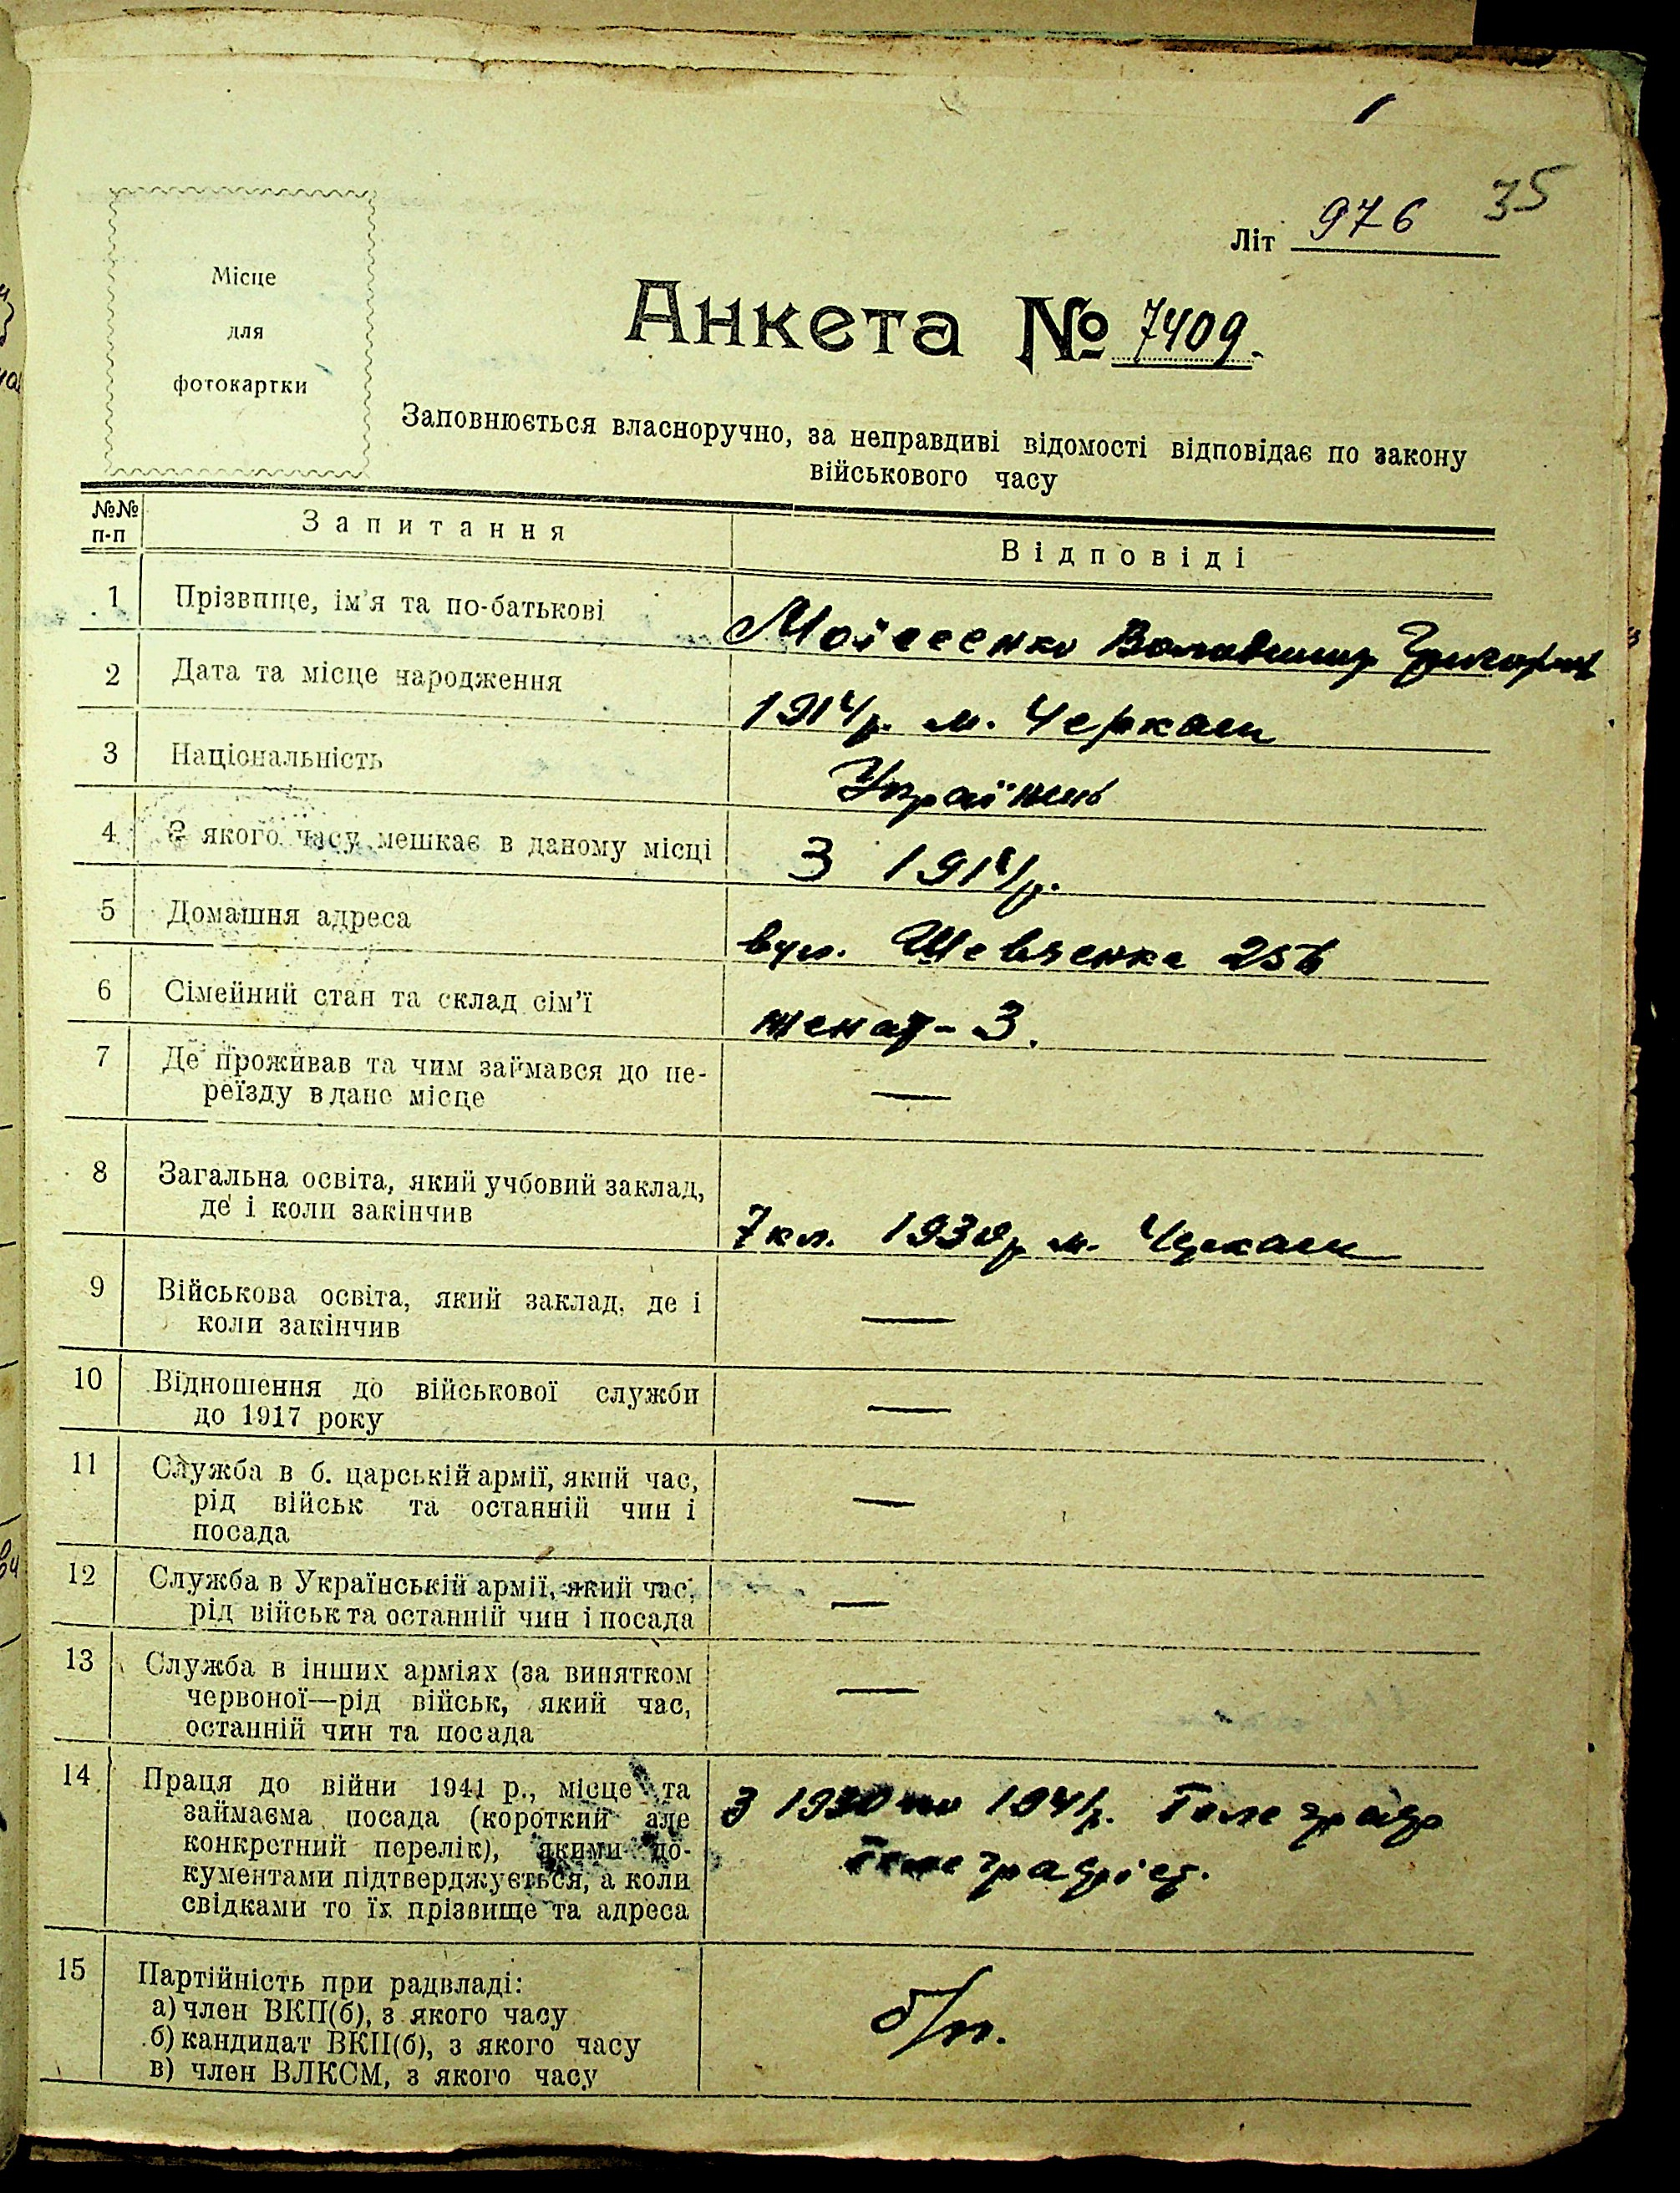 35
Літ 976
Місце
для
фотокартки
Анкета № 7409.
Заповнюється власноручно, за неправдиві відомості відповідає по закону
військового часу
№№ п-п Запитання Відповіді
1 Прізвище, ім'я та по-батькові Моісеенко Володимир Григор
2 Дата та місце народження 1914р. м. Черкаси
3 Національність Українець
4 З якого часу мешкає в даному місці З 1914р.
5 Домашня адреса вул. Шевченка 256
6 Сімейний стан та склад сім'ї женат - 3.
7 Де проживав та чим займався до пе-
реїзду в дане місце —
8 Загальна освіта, який учбовий заклад,
де і коли закінчив 7 кл. 1930р м. Черкаси
9 Військова освіта, який заклад, де і
коли закінчив —
10 Відношення до військової служби
до 1917 року —
11 Служба в б. царській армії, який час,
рід військ та останній чин і
посада —
12 Служба в Українській армії, який час,
рід військ та останній чин і посада —
13 Служба в інших арміях (за винятком
червоної—рід військ, який час,
останній чин та посада —
14 Праця до війни 1941 р., місце та
займаєма посада (короткий але
конкретний перелік), якими до-
кументами підтверджується, а коли
свідками то їх прізвище та адреса
З 1930 по 1941р. Телеграф
Телеграфіст.
15 Партійність при радвладі:
а) член ВКП(б), з якого часу
б) кандидат ВКП(б), з якого часу
в) член ВЛКСМ, з якого часу
б/п.